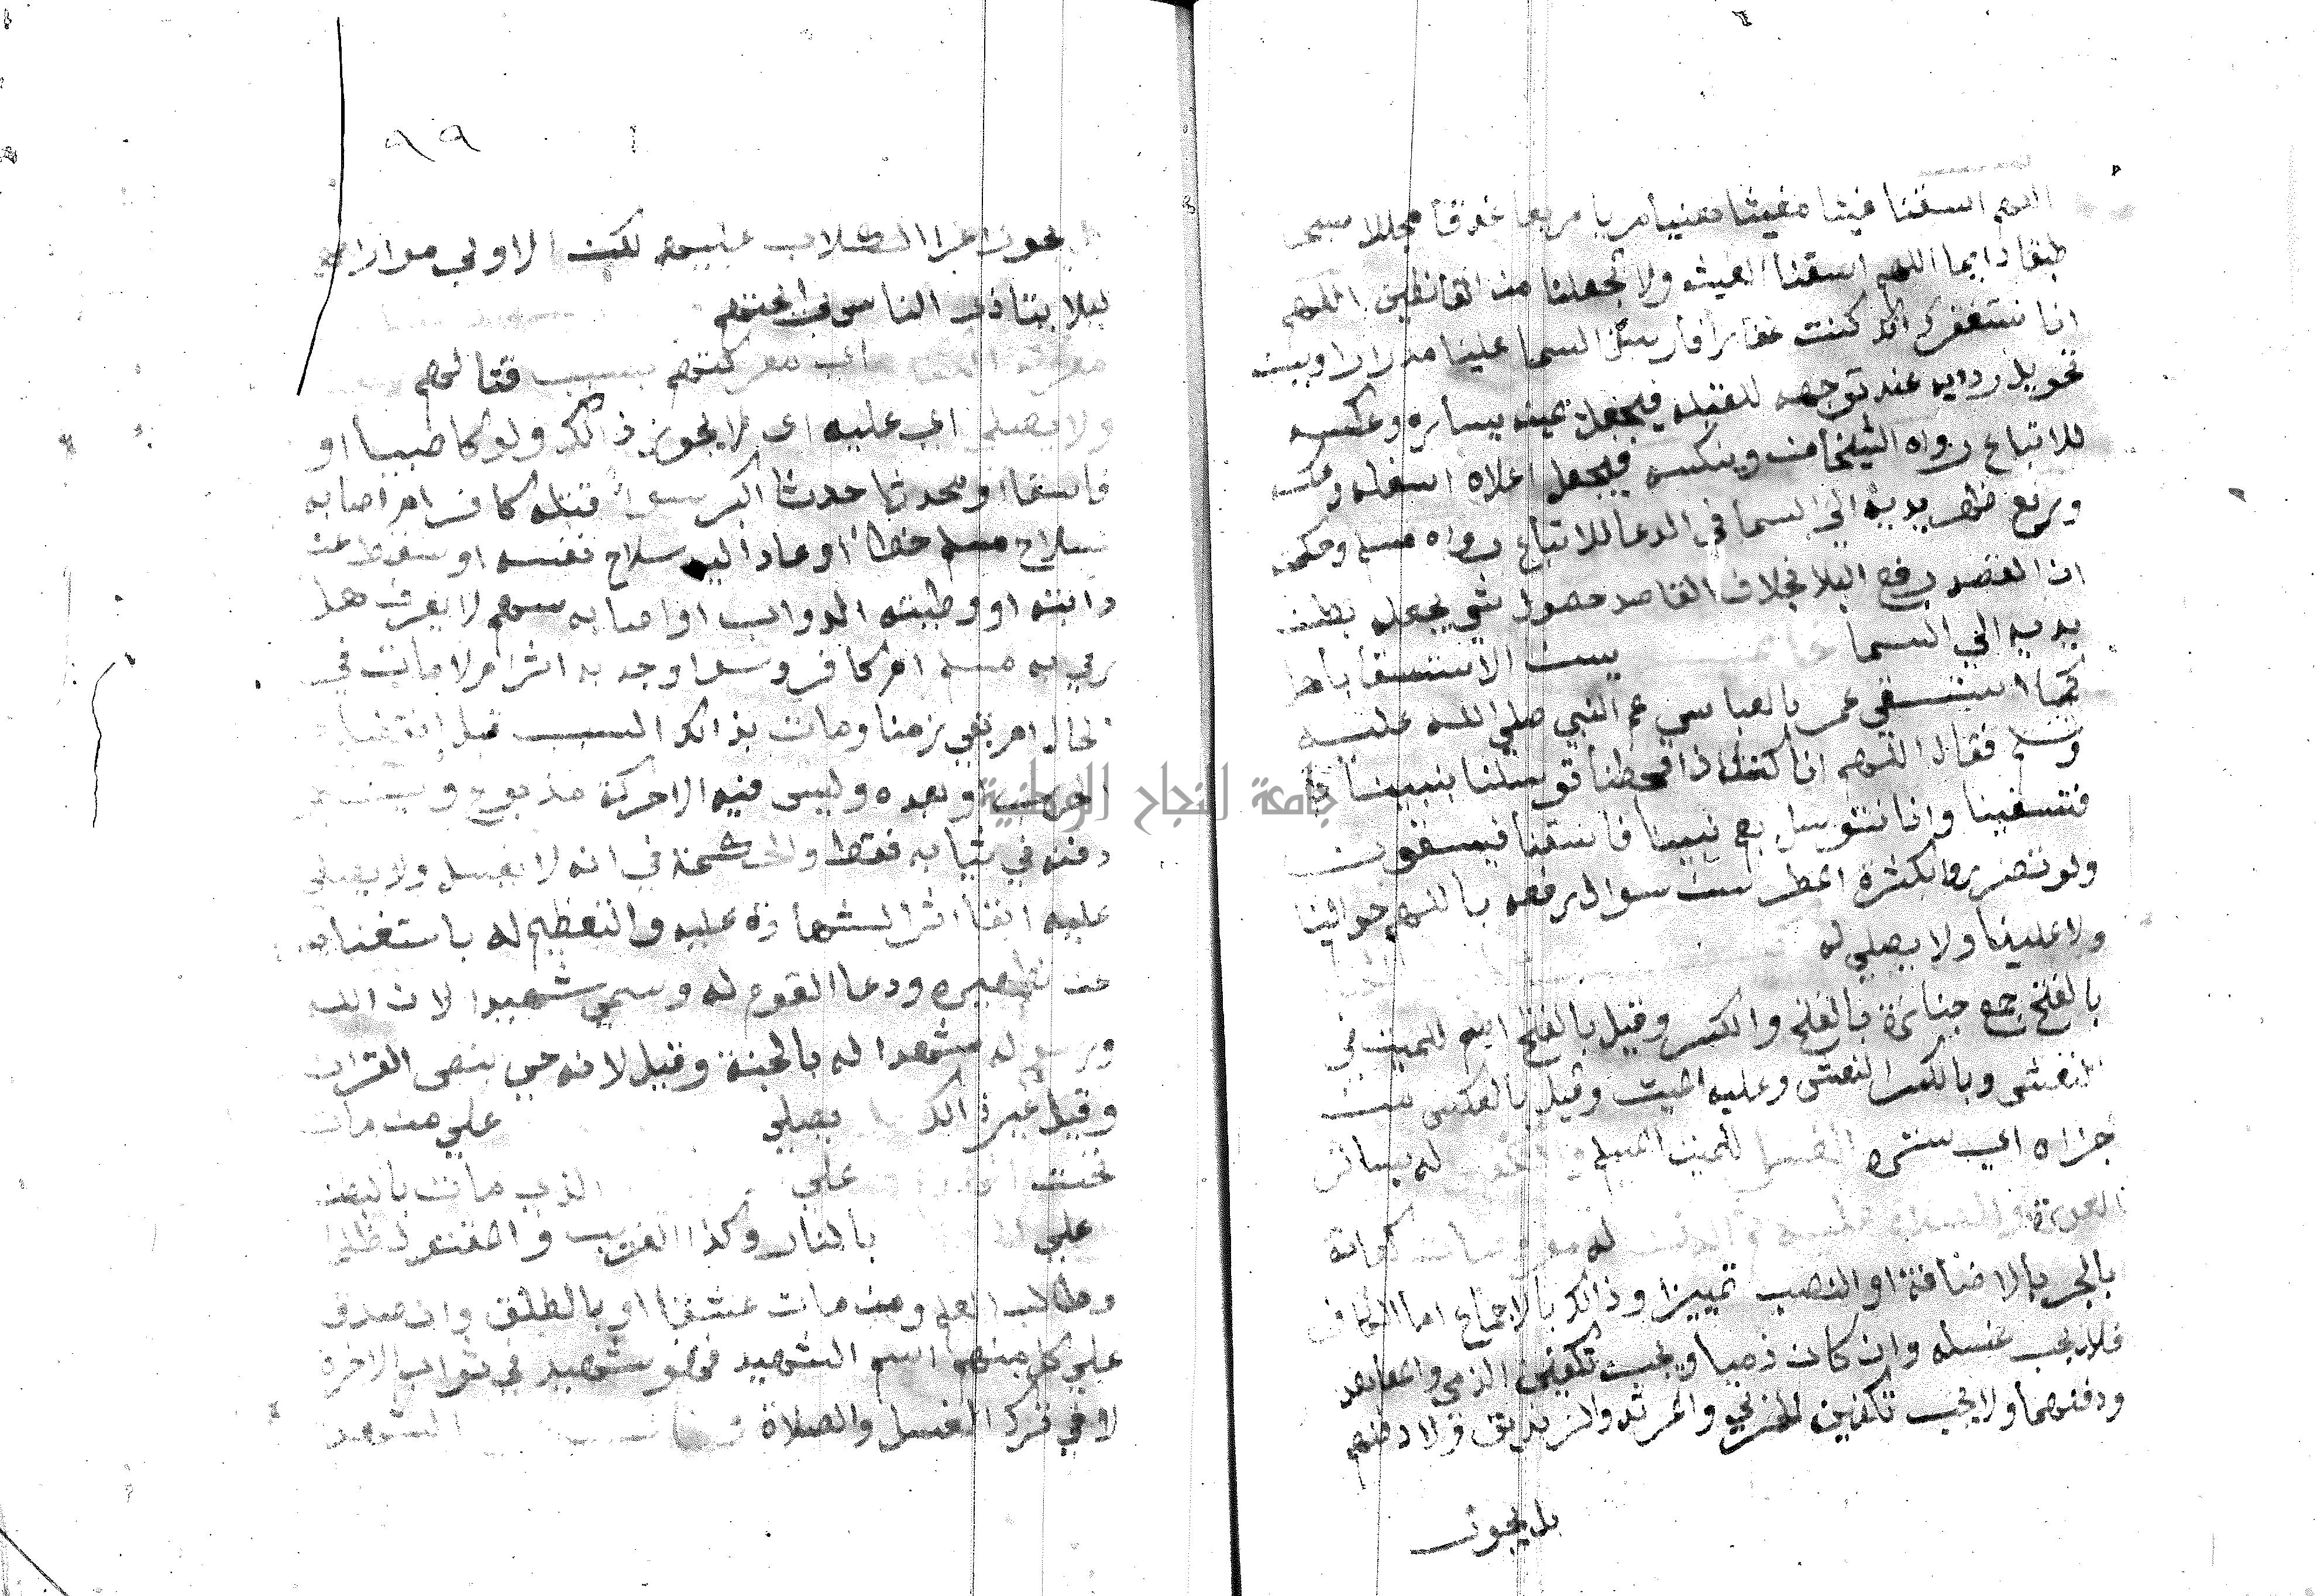 اللهم اسقنا غيثا مغيثا هنيا مريا مريعا غدقا مجللا سحا
طبقا دايما اللهم اسقنا الغيث ولا تجعلنا من القانطين اللهم
انا نستغفرك انك كنت غفارا فارسل السما علينا مدرارا ويسن
تحويل ردايه عند توجهه للقبله فيجعل يمينه يساره وعكسه
للاتباع رواه الشيخان وينكسه فيجعل اعلاه اسفله وعكسه
ويرفع ظهر يديه الي السما في الدعا للاتباع رواه مسلم وحكمته
ان القصد رفع البلا بخلاف القاصد حصول شي يجعل بطن
يديه الي السما يسن الاستسقا باهل
كما استسقي عمر بالعباس عم النبي صلي الله عليه
وسلم فقال اللهم انا كنا اذا قحطنا توسلنا بنبينا
فتسقينا وانا نتوسل بعم نبينا فاسقنا فيسقون
ولو تضرروا بكثرة المطر سن سوال رفعه باللهم حوالينا
ولا علينا ولا يصلي له
بالفتح جمع جنازة بالفتح والكسر وقيل بالفتح اسم للميت في
النعش وبالكسر النعش وعليه الميت وقيل بالعكس من
جنزه اي ستره الغسل للميت المسلم له بساتر
العورة والصلاة عليه والدفن له مفروضات كفاية
بالجر بالاضافة او النصب تمييزا وذالك بالاجماع اما الكافر
فلا يجب غسله وان كان ذميا ويجب تكفين الذمي والمعاهد
ودفنهما ولا يجب تكفين الحربي والمرتد والزنديق ولا دفنهم
بل يجوز
٩٩
بل يجوز اغرا الكلاب عليهم لكن الاولي مواراتهم
ليلا يتاذي الناس برايحتهم
معركة الكفار اي معركتهم بسبب قتالهم
ولا يصلي اي عليه اي لا يجوز ذالك ولو كان صبيا او
فاسقا او محدثا حدثا اكبر سوا قتله كافر ام اصابه
سلاح مسلم خطا او عاد اليه سلاح نفسه او سقط عن
دابته او وطيته الدواب او اصابه سهم لا يعرف هل
رمي به مسلم ام كافر وسوا وجد به اثر ام لا مات في
الحال ام بقي زمنا ومات بذالك السبب قبل انقضا
الحرب او بعده وليس فيه الا حركة مذبوح ويسن
دفنه في ثيابه فقط والحكمة في انه لا يغسل ولا يصلي
عليه ابقا اثر الشهادة عليه والتعظيم له باستغنايه
عن تطهيره ودعا القوم له وسمي شهيدا لان الله
ورسوله شهدا له بالجنة وقيل لانه حي بنص القران
وقيل غير ذالك يصلي علي من مات
تحت علي الذي مات بالبطن
علي بالنار وكذا الغريب والمقتول ظلما
وطالب العلم ومن مات عشقا او بالطلق وان صدق
علي كل منهم اسم الشهيد فهو شهيد في ثواب الاخرة
لا في ترك الغسل والصلاة الشهيد
جامعة النجاح الوطنية